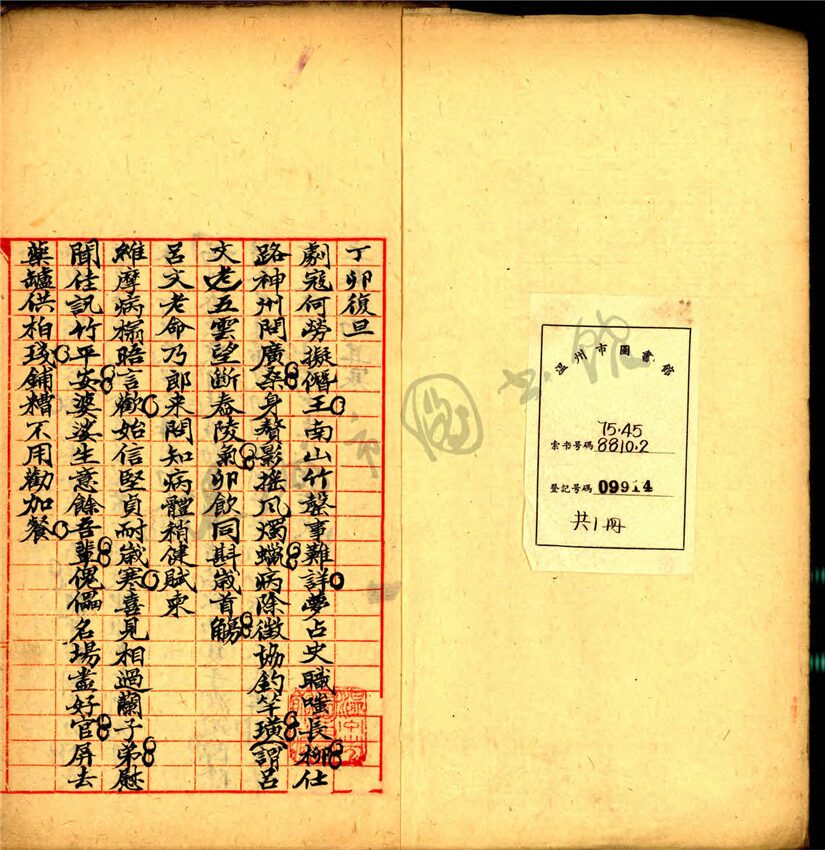 溫州市圖書館
75.45
索书号碼 8810.2
登記号碼 09914
共1冊
丁卯復旦
劇寇何勞擬僭王南山竹罄事難詳夢占史職嗤長柳仕
路神州閟廣桑身贅影搖風燭蠟病除徵協釣竿璜謂呂
文老五雲望斷舂陵氣卯飲同斟歲首觴
呂文老命乃郎来問知病體稍健賦柬
維摩病榻晤言歡始信堅貞耐歲寒喜見相過蘭子弟慰
聞佳訊竹平安婆娑生意餘吾輩傀儡名場盡好官屏去
藥罏供柏琖餔糟不用勸加餐